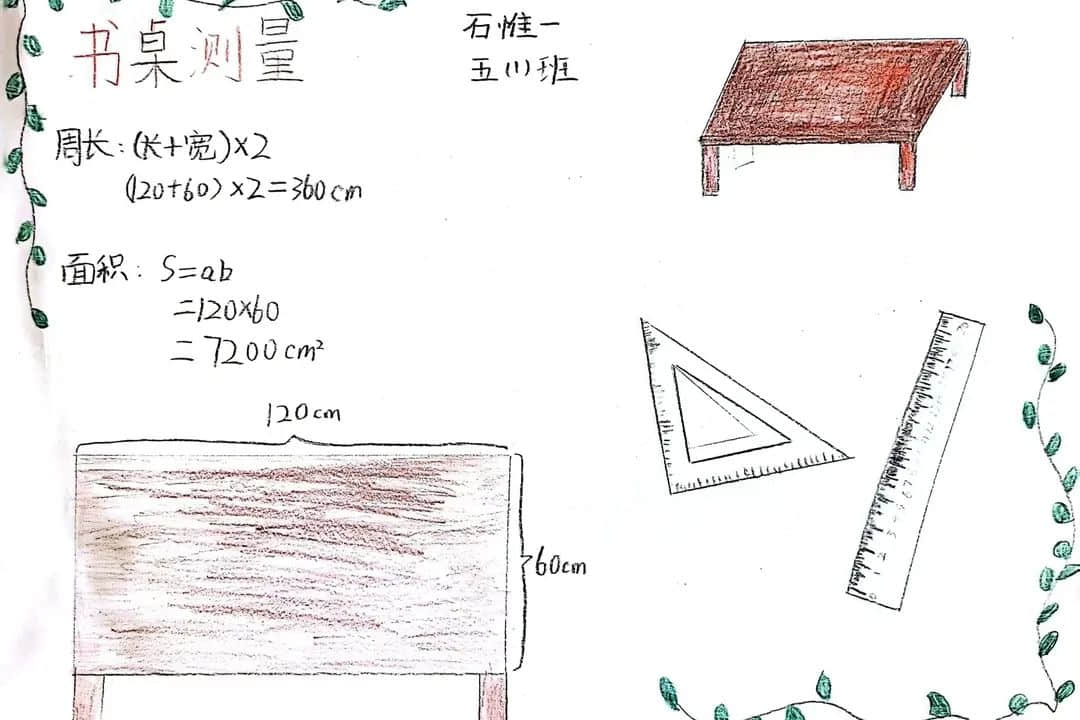 书桌测量
石惟一
五(1)班
周长:(长+宽)×2
(120+60)×2=360cm
面积: S=ab
=120×60
=7200cm²
120cm
60cm